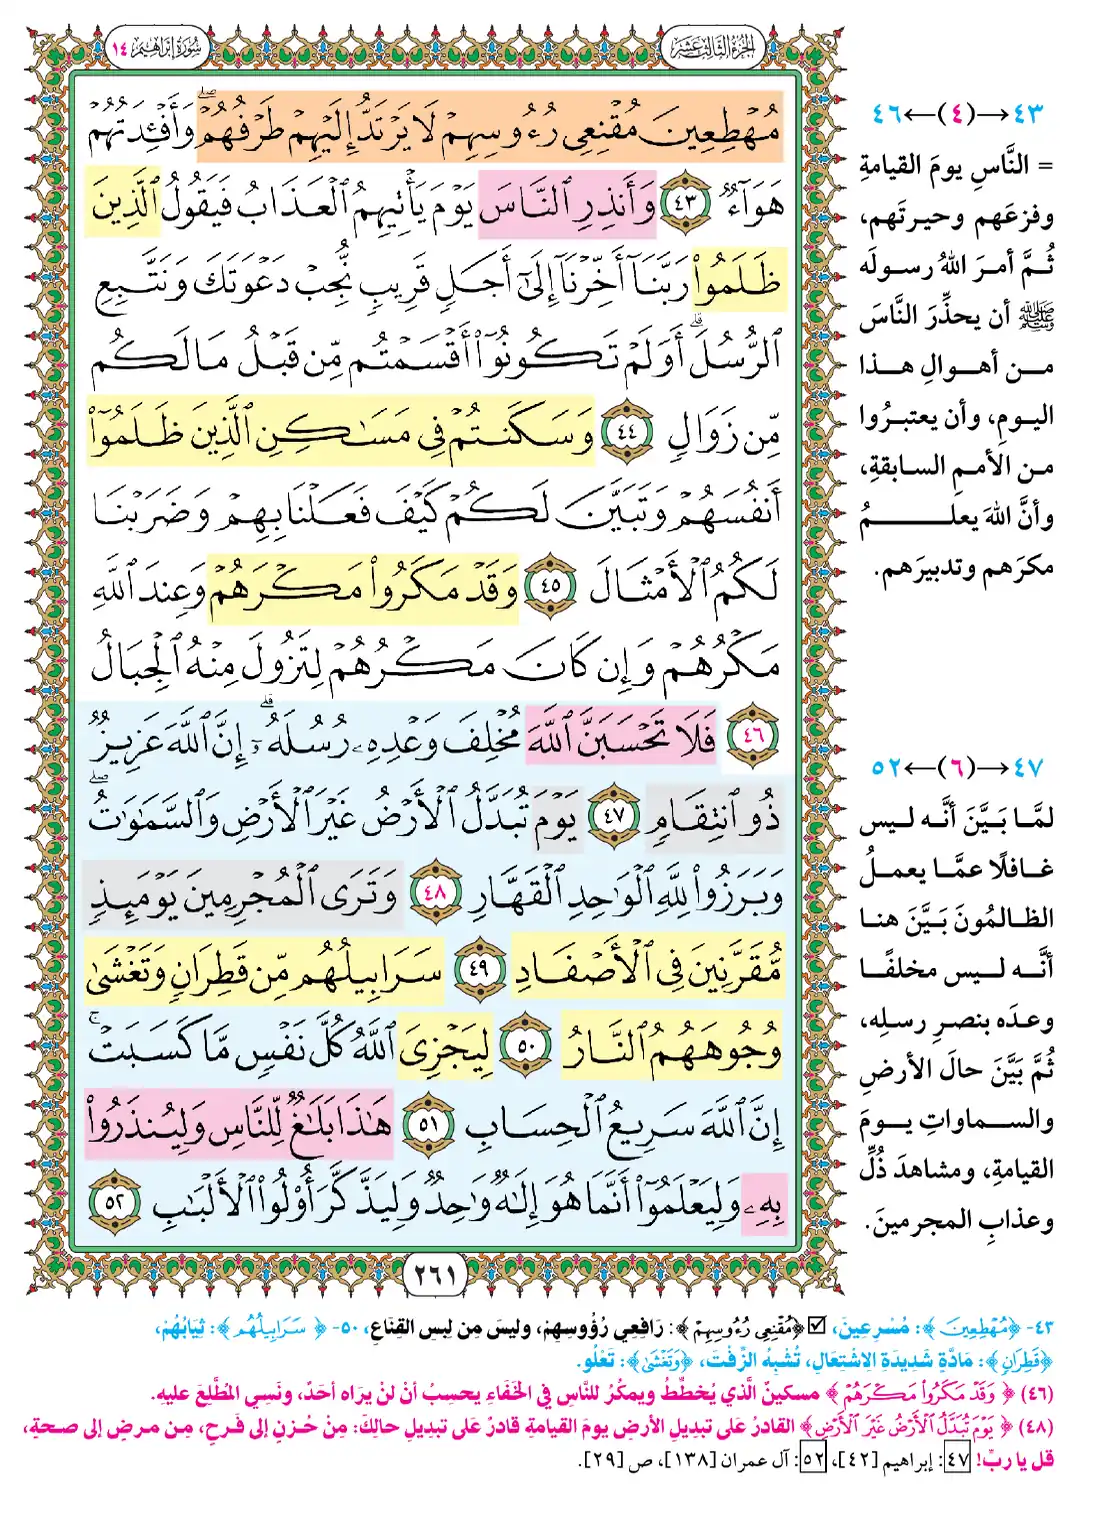 سُورَةُ إِبْرَاهِيمَ ١٤
الجُزْءُ الثَّالِثَ عَشَرَ
مُهْطِعِينَ مُقْنِعِى رُءُوسِهِمْ لَا يَرْتَدُّ إِلَيْهِمْ طَرْفُهُمْ ۖ وَأَفْـِٔدَتُهُمْ
هَوَآءٌ ٤٣ وَأَنذِرِ ٱلنَّاسَ يَوْمَ يَأْتِيهِمُ ٱلْعَذَابُ فَيَقُولُ ٱلَّذِينَ
ظَلَمُوا۟ رَبَّنَآ أَخِّرْنَآ إِلَىٰٓ أَجَلٍ قَرِيبٍ نُّجِبْ دَعْوَتَكَ وَنَتَّبِعِ
ٱلرُّسُلَ ۗ أَوَلَمْ تَكُونُوٓا۟ أَقْسَمْتُم مِّن قَبْلُ مَا لَكُم
مِّن زَوَالٍ ٤٤ وَسَكَنتُمْ فِى مَسَـٰكِنِ ٱلَّذِينَ ظَلَمُوٓا۟
أَنفُسَهُمْ وَتَبَيَّنَ لَكُمْ كَيْفَ فَعَلْنَا بِهِمْ وَضَرَبْنَا
لَكُمُ ٱلْأَمْثَالَ ٤٥ وَقَدْ مَكَرُوا۟ مَكْرَهُمْ وَعِندَ ٱللَّهِ
مَكْرُهُمْ وَإِن كَانَ مَكْرُهُمْ لِتَزُولَ مِنْهُ ٱلْجِبَالُ
٤٦ فَلَا تَحْسَبَنَّ ٱللَّهَ مُخْلِفَ وَعْدِهِۦ رُسُلَهُۥٓ ۗ إِنَّ ٱللَّهَ عَزِيزٌ
ذُو ٱنتِقَامٍ ٤٧ يَوْمَ تُبَدَّلُ ٱلْأَرْضُ غَيْرَ ٱلْأَرْضِ وَٱلسَّمَـٰوَٰتُ ۖ
وَبَرَزُوا۟ لِلَّهِ ٱلْوَٰحِدِ ٱلْقَهَّارِ ٤٨ وَتَرَى ٱلْمُجْرِمِينَ يَوْمَئِذٍ
مُّقَرَّنِينَ فِى ٱلْأَصْفَادِ ٤٩ سَرَابِيلُهُم مِّن قَطِرَانٍ وَتَغْشَىٰ
وُجُوهَهُمُ ٱلنَّارُ ٥٠ لِيَجْزِىَ ٱللَّهُ كُلَّ نَفْسٍ مَّا كَسَبَتْ ۚ
إِنَّ ٱللَّهَ سَرِيعُ ٱلْحِسَابِ ٥١ هَـٰذَا بَلَـٰغٌ لِّلنَّاسِ وَلِيُنذَرُوا۟
بِهِۦ وَلِيَعْلَمُوٓا۟ أَنَّمَا هُوَ إِلَـٰهٌ وَٰحِدٌ وَلِيَذَّكَّرَ أُو۟لُوا۟ ٱلْأَلْبَـٰبِ ٥٢
٢٦١
٤٣→(٤)←٤٦
= النَّاسِ يومَ القيامةِ
وفزعَهم وحيرتَهم،
ثُمَّ أمرَ اللهُ رسولَه
ﷺ أن يحذِّرَ النَّاسَ
من أهوالِ هذا
اليومِ، وأن يعتبرُوا
من الأممِ السابقةِ،
وأنَّ اللهَ يعلمُ
مكرَهم وتدبيرَهم.
٤٧→(٦)←٥٢
لمَّا بَيَّنَ أنَّه ليس
غافلًا عمَّا يعملُ
الظالمُونَ بَيَّنَ هنا
أنَّه ليس مخلفًا
وعدَه بنصرِ رسلِه،
ثُمَّ بَيَّنَ حالَ الأرضِ
والسماواتِ يومَ
القيامةِ، ومشاهدَ ذُلِّ
وعذابِ المجرمينَ.
٤٣- ﴿مُهْطِعِينَ﴾: مُسْرِعِينَ، ☑ ﴿مُقْنِعِى رُءُوسِهِمْ﴾: رَافِعِي رُؤُوسِهِمْ، وليسَ مِن لبسِ القِنَاعِ، ٥٠- ﴿سَرَابِيلُهُم﴾: ثِيَابُهُمْ،
﴿قَطِرَانٍ﴾: مَادَّةٍ شَدِيدَةِ الاشْتِعَالِ، تُشْبِهُ الزِّفْتَ، ﴿وَتَغْشَىٰ﴾: تَعْلُو.
(٤٦) ﴿وَقَدْ مَكَرُوا۟ مَكْرَهُمْ﴾ مسكينٌ الَّذي يُخطِّطُ ويمكُرُ للنَّاسِ في الخَفَاءِ يحسِبُ أنْ لنْ يرَاه أحَدٌ، ونَسِي المُطَّلِعَ عليهِ.
(٤٨) ﴿يَوْمَ تُبَدَّلُ ٱلْأَرْضُ غَيْرَ ٱلْأَرْضِ﴾ القادرُ عَلى تبديلِ الأرضِ يومَ القيامةِ قادرٌ عَلى تبديلِ حالِكَ: مِنْ حُزنٍ إلى فَرحٍ، مِن مرضٍ إلى صحةٍ،
قل يا ربِّ! ٤٧: إبراهيم [٤٢]، ٥٢: آل عمران [١٣٨]، ص [٢٩].